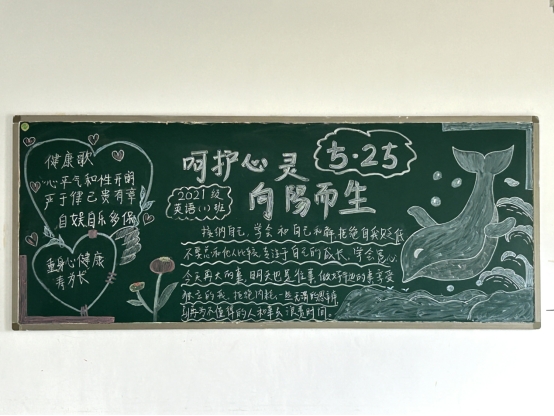 健康歌
心平气和性开朗
严于律己贵有章
自娱自乐多保
重身心健康
寿方长
呵护心灵
5·25
向阳而生
2021级
英语(1)班
接纳自己,学会和自己和解拒绝自我贬低
不要总和他人比较,专注于自己的成长,学会宽心
今天再大的事,明天也是往事,做好手边的事享受
独立的我,拒绝内耗
不值得的人和事
浪费时间。